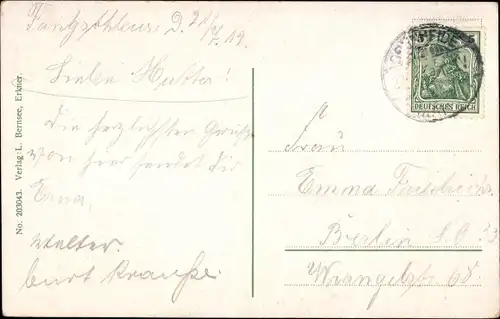 Liebe Mutter!
Die herzlichsten Grüße
von hier sendet dir
Erna,
Walter
Curt Krause
No: 203043. Verlag: L. Bernsee, Erkner.
5
DEUTSCHES REICH
Frau
Emma
Berlin S.O. 33
Wrangelstr. 68.